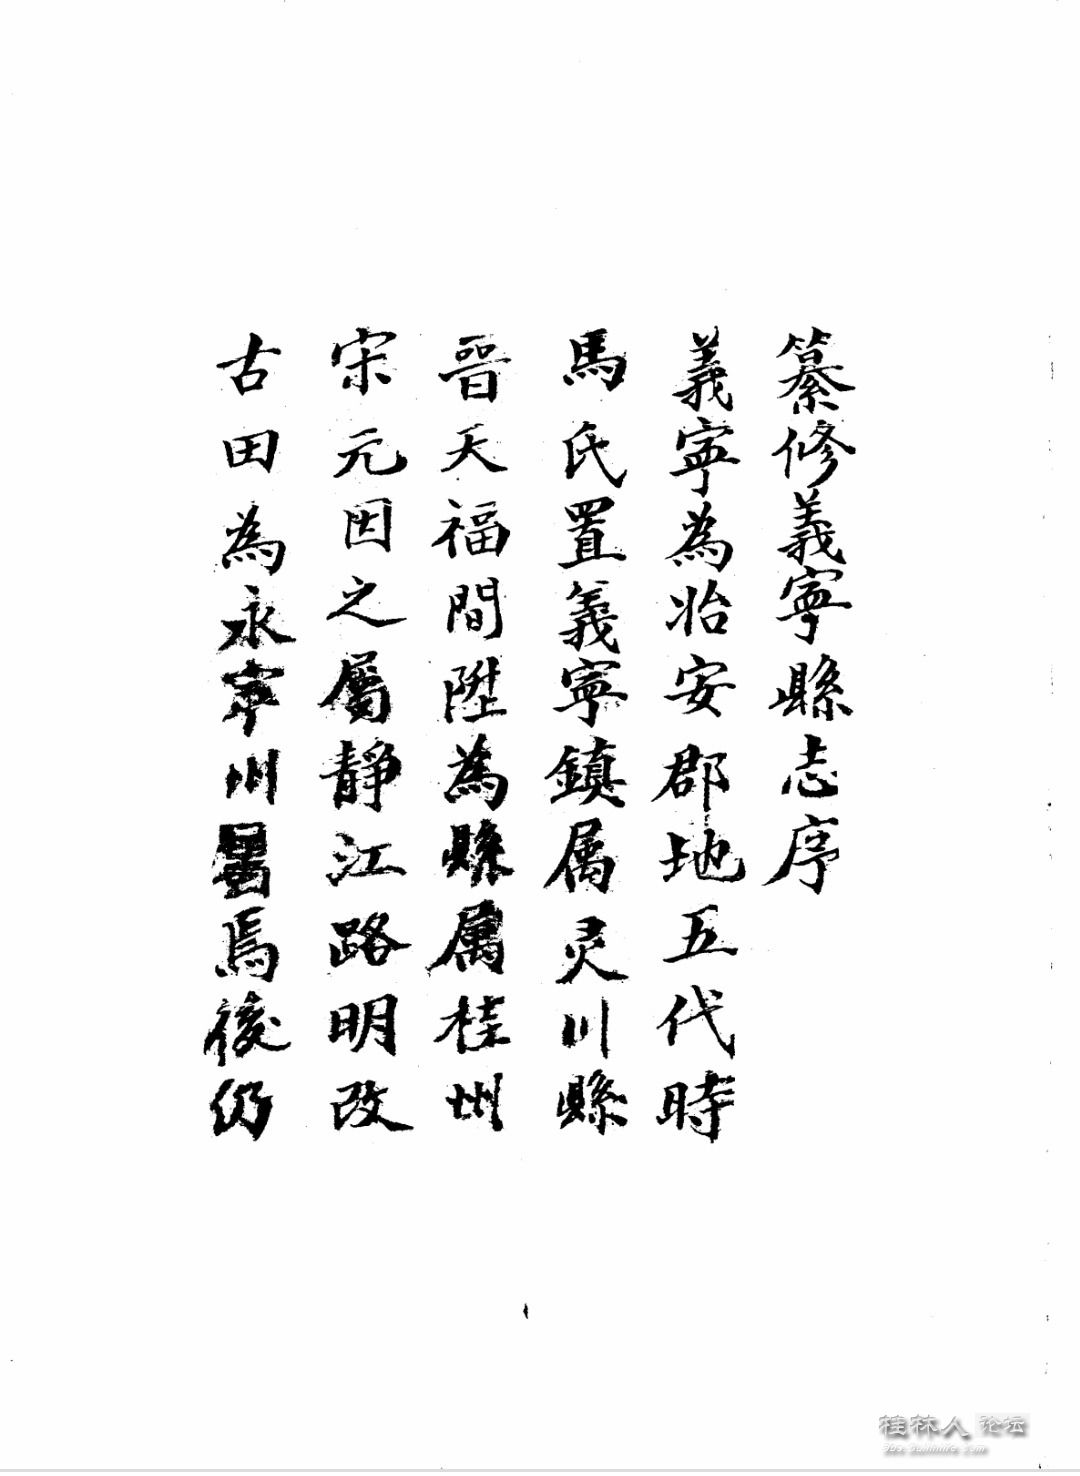 纂修義寧縣志序
義寧為始安郡地五代時
馬氏置義寧鎮属灵川縣
晉天福間陞為縣属桂州
宋元因之屬静江路明改
古田為永寧州屬焉後仍
桂林人论坛